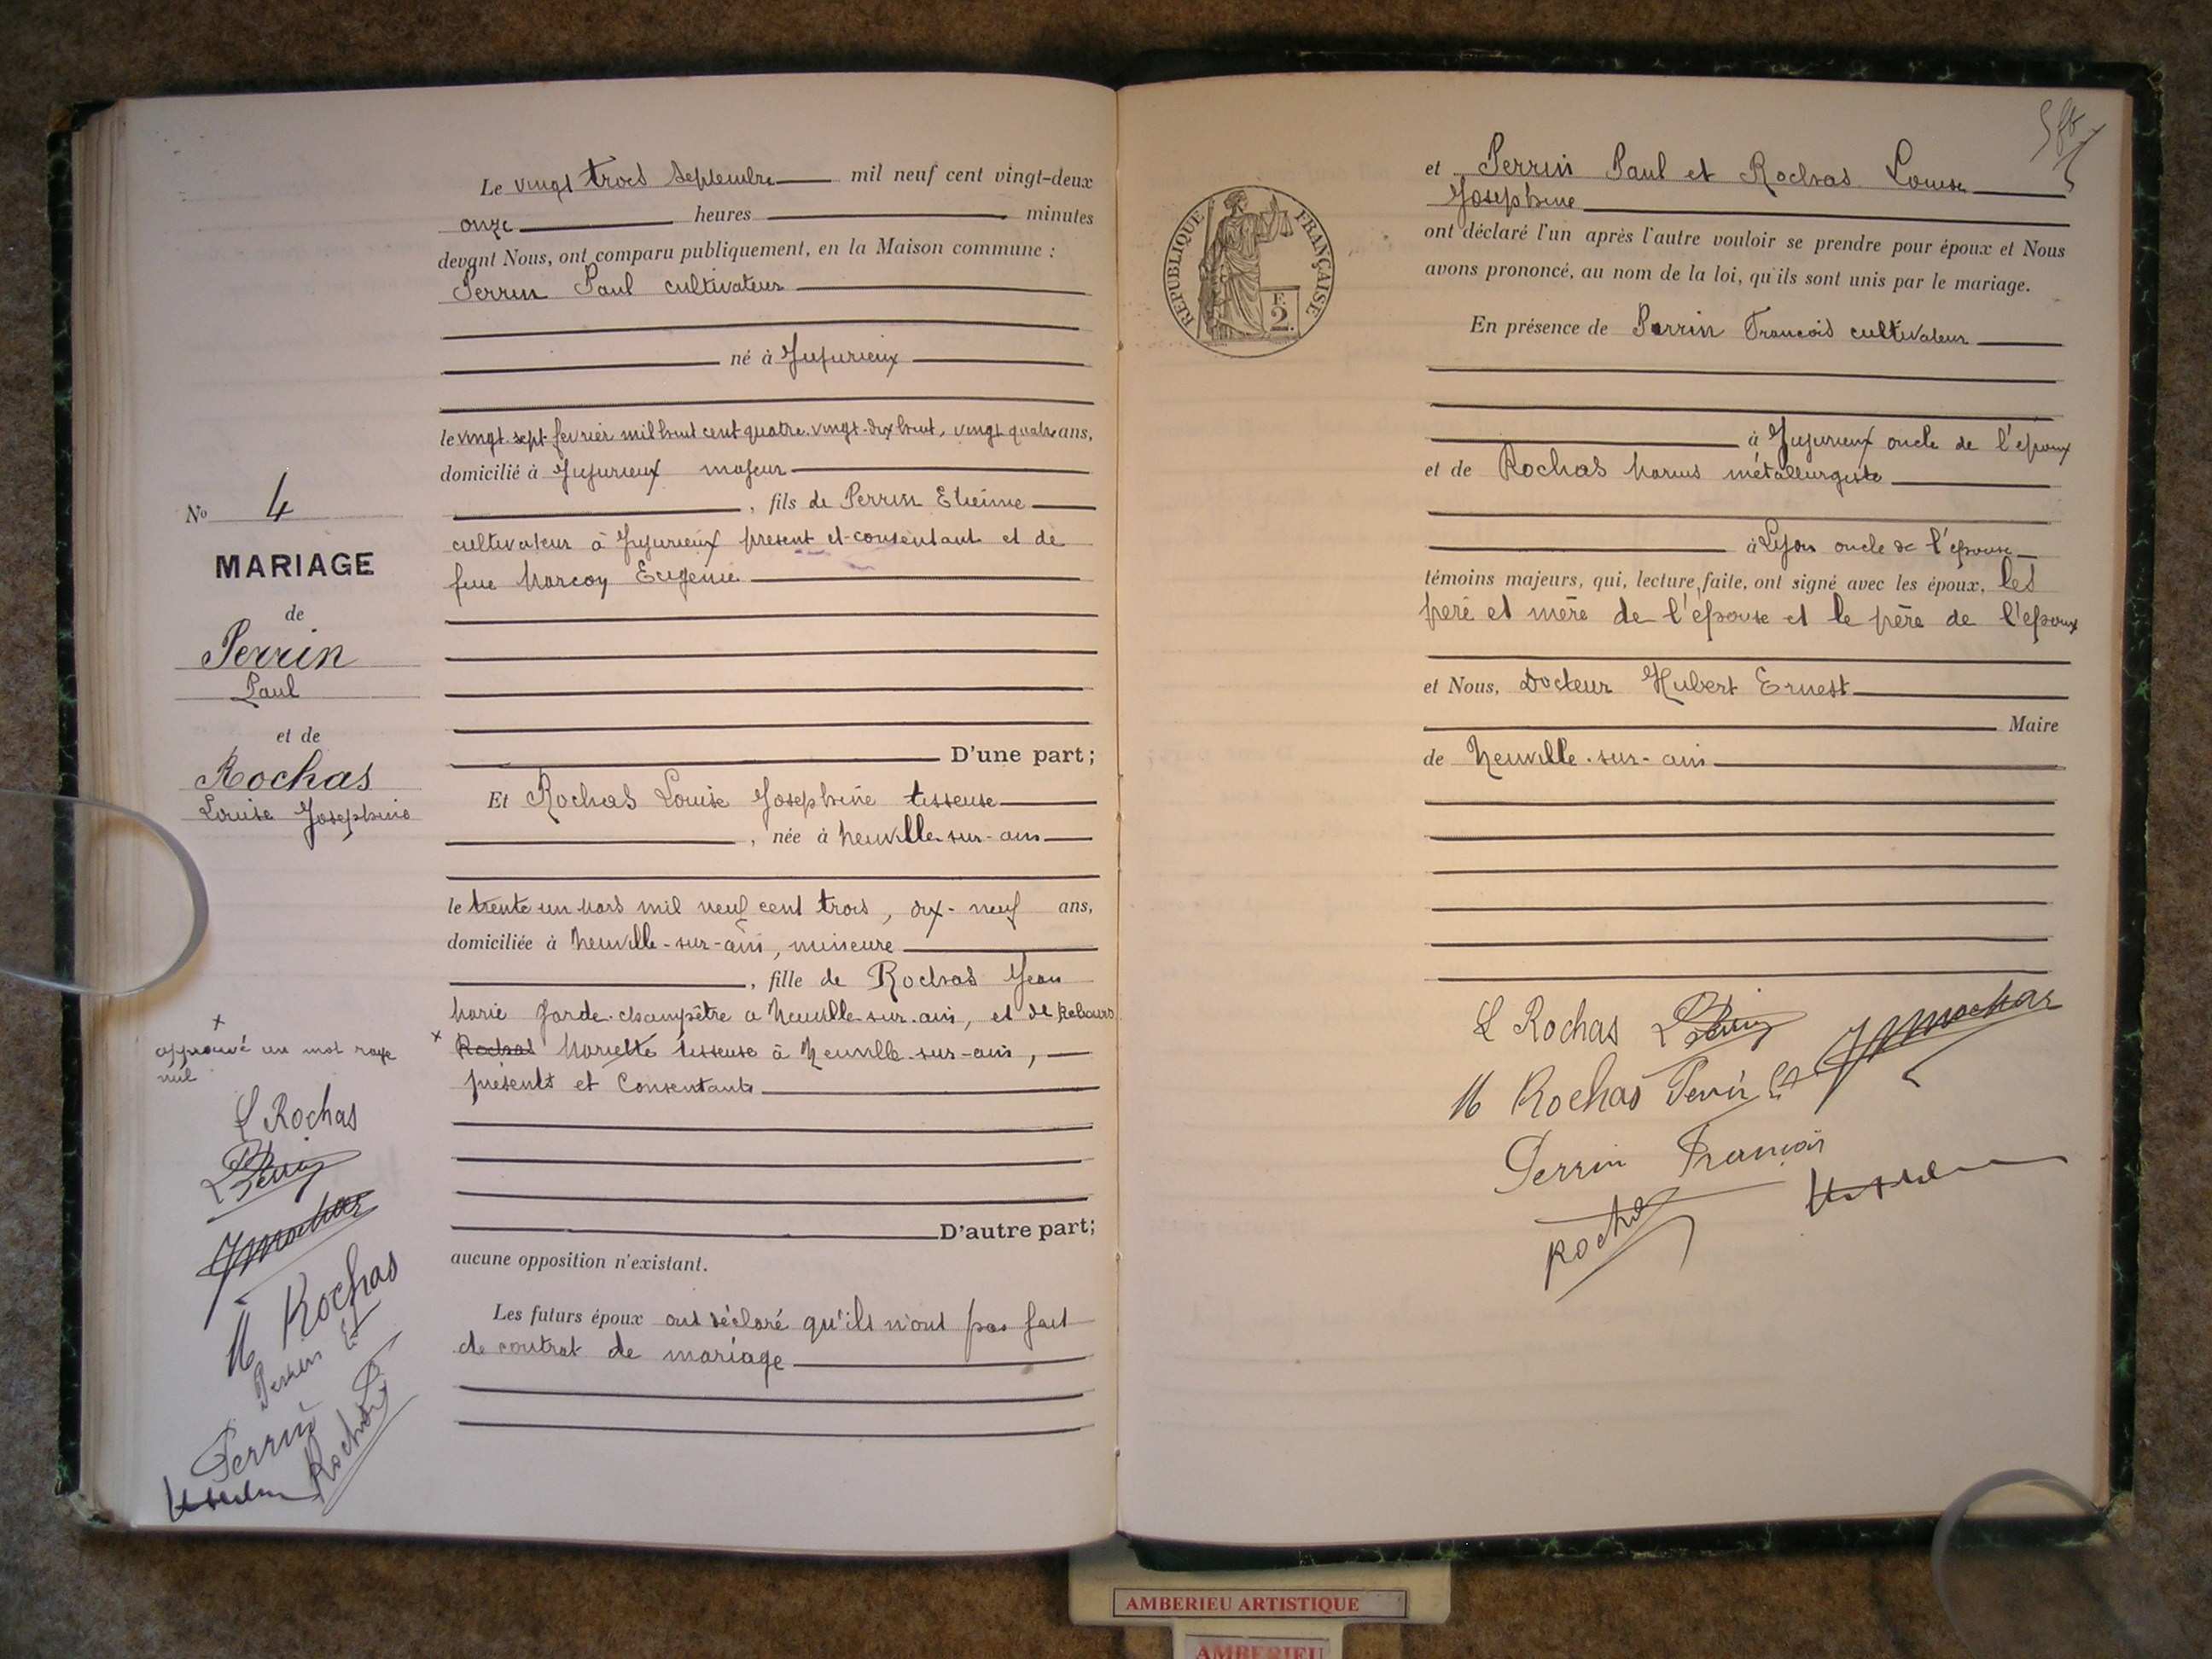 No 4
MARIAGE
de
Perrin
Paul
et de
Rochas
Louise Josephine
x
approuvé un mot rayé
nul
L Rochas
Perrin
M Rochas
Perrin Et
Perrin
Rochas
Le vingt trois Septembre mil neuf cent vingt-deux
onze heures minutes
devant Nous, ont comparu publiquement, en la Maison commune :
Perrin Paul cultivateur
né à Jujurieux
le vingt-sept fevrier mil huit cent quatre-vingt-dix huit, vingt quatre ans,
domicilié à Jujurieux majeur
, fils de Perrin Etienne
cultivateur à Jujurieux présent et consentant et de
feue Marcoy Eugénie
D'une part;
Et Rochas Louise Josephine tisseuse
, née à Neuville-sur-ain
le trente un Mars mil neuf cent trois, dix-neuf ans,
domiciliée à Neuville-sur-ain, mineure
, fille de Rochas Jean
Marie Garde-champêtre a Neuville-sur-ain, et de Rebours
x Rochas Mariette tisseuse à Neuville-sur-ain,
présents et Consentants
D'autre part;
aucune opposition n'existant.
Les futurs époux ont déclaré qu'ils n'ont pas fait
de contrat de mariage
RÉPUBLIQUE FRANÇAISE
F.
2.
et Perrin Paul et Rochas Louise
Josephine
ont déclaré l'un après l'autre vouloir se prendre pour époux et Nous
avons prononcé, au nom de la loi, qu'ils sont unis par le mariage.
En présence de Perrin Francois cultivateur
à Jujurieux oncle de l'époux
et de Rochas Marius métallurgiste
à Lyon oncle de l'épouse
témoins majeurs, qui, lecture faite, ont signé avec les époux, les
père et mère de l'épouse et le père de l'époux
et Nous, Docteur Hubert Ernest
Maire
de Neuville-sur-ain
L Rochas Perrin
M Rochas Perrin Et
Perrin François
Rochas
AMBERIEU ARTISTIQUE
AMBERIEU